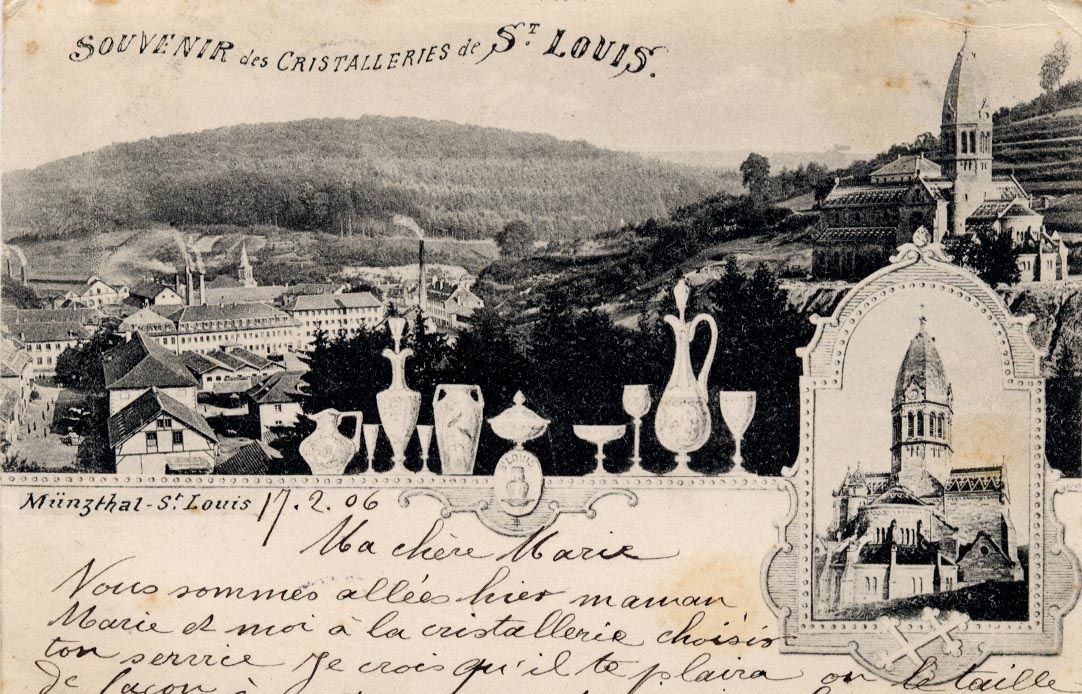 SOUVENIR des CRISTALLERIES de ST LOUIS.
ST LOUIS
Münzthal-St. Louis 17.2.06
Ma chère Marie
Nous sommes allées hier maman
Marie et moi à la cristallerie choisir
ton service Je crois qu'il te plaira on le taille
de façon à